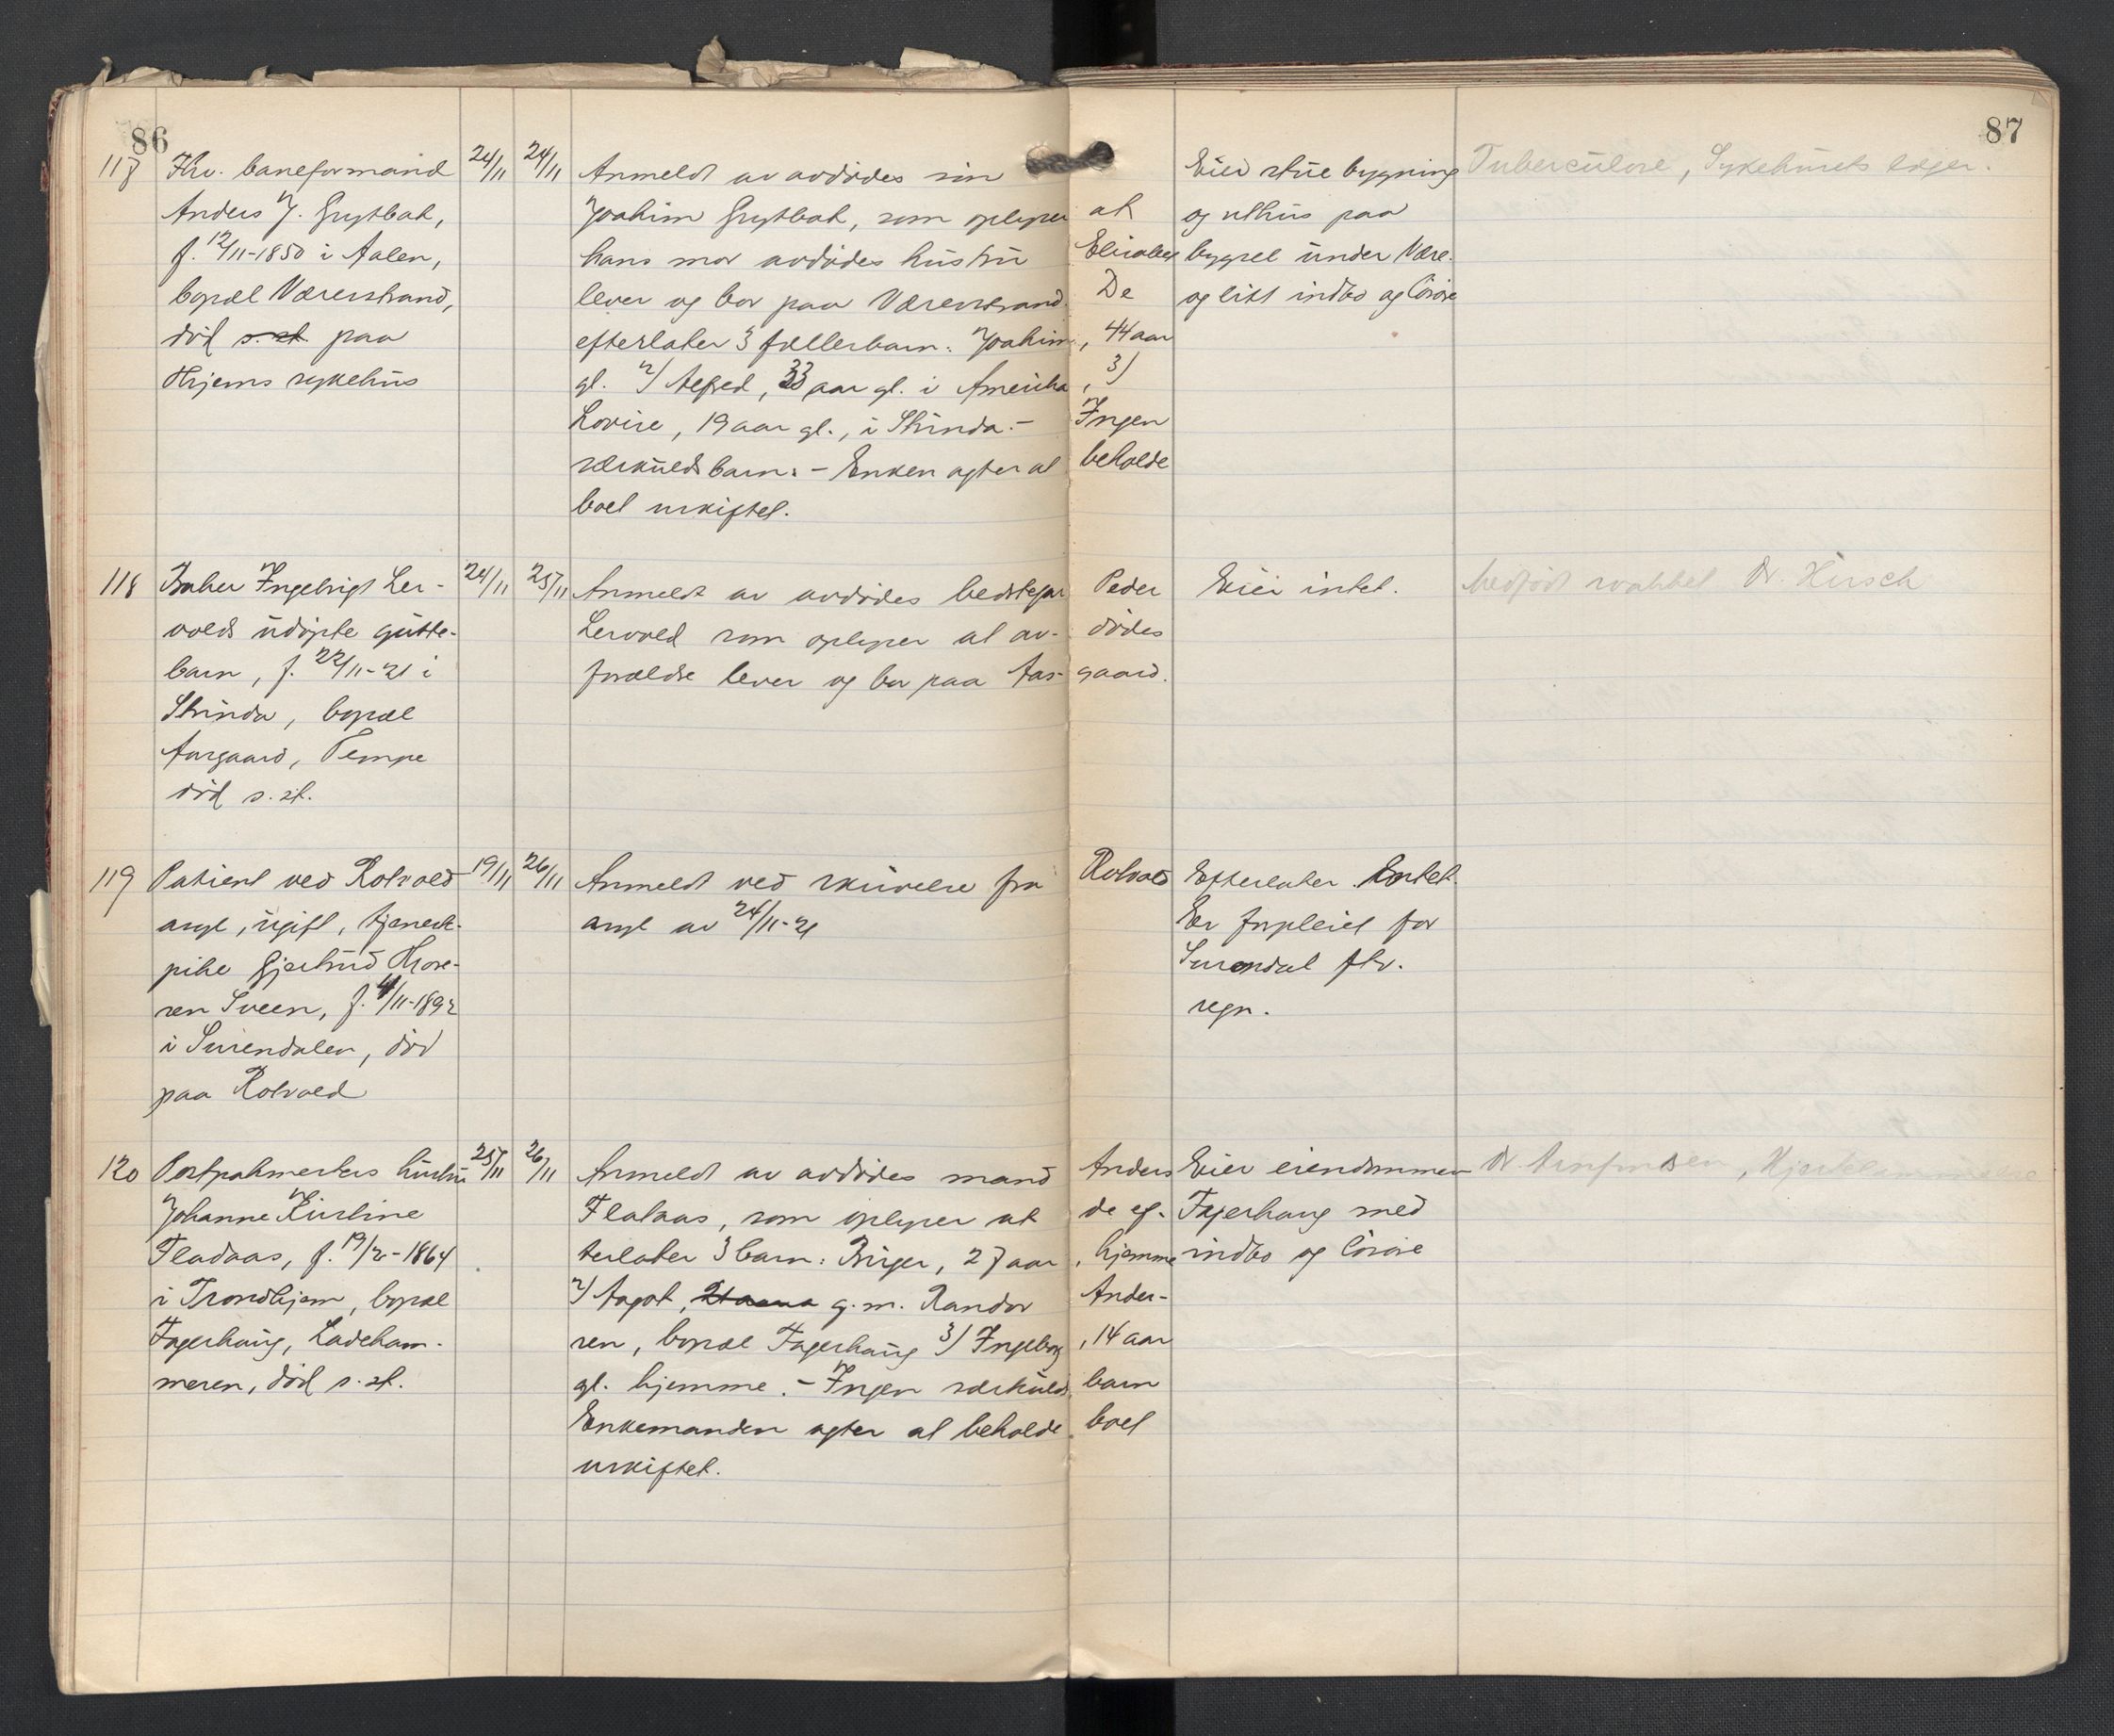 86
87
117 Fhv. baneformand 24/11 24/11 Anmeldt av avdødes søn
Anders J. Grytbak,
f. 12/11-1850 i Aalen,
bopæl Værestrand,
død s. st. paa
Thjems sykehus
Joakim Grytbak, som oplyser at
hans mor avdødes hustru Elisabet
lever og bor paa Værestrand. De
efterlater 3 fællesbarn: Joakim, 44 aar
gl. 2) Alfred, 33 aar gl. i Amerika, 3)
Lovise, 19 aar gl., i Strinda. - Ingen
særkuldsbarn. - Enken agter at beholde
boet uskiftet.
Eier stuebygning
og uthus paa
bygsel under Være.
og litt indbo og løsøre
Tuberculose, Sykehusets læger.
118 Baker Ingebrigt Ler- 24/11 25/11 Anmeldt av avdødes bedstefar Peder
volds udøpte gutte-
barn, f. 22/11-21 i
Strinda, bopæl
Aasgaard, Tempe
død s. st.
Lervold som oplyser at av- dødes
forældre lever og bor paa Aas- gaard.
Eier intet.
Medfødt svakhet Dr. Hirsch
119 Patient ved Rotvold 19/11 26/11 Anmeldt ved skrivelse fra Rotvold
asyl, ugift, tjeneste-
pike Gjertrud Thore-
sen Sveen, f. 4/11-1892
i Surendalen, død
paa Rotvold
asyl av 24/11-21
Efterlater Intet.
Er forpleiet for
Surendal ftv.
regn.
120 Postpakmesters hustru 25/11 26/11 Anmeldt av avdødes mand Anders
Johanne Kirstine
Fladaas, f. 19/2-1864
i Trondhjem, bopæl
Fagerhaug, Ladeham-
meren, død s. st.
Flataas, som oplyser at de ef-
terlater 3 barn: Birger, 27 aar, hjemme
2) Aagot, 21 aar g. m. Randor Ander-
sen, bopæl Fagerhaug 3) Ingeborg, 14 aar
gl. hjemme. - Ingen særkulds barn
Enkemanden agter at beholde boet
uskiftet.
Eier eiendommen
Fagerhaug med
indbo og løsøre
Dr. Hjertelammelse